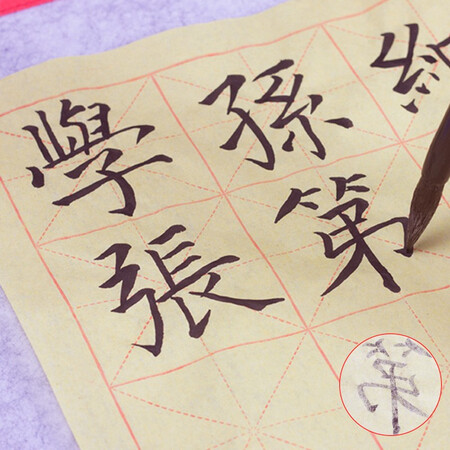 學孫
張第
第